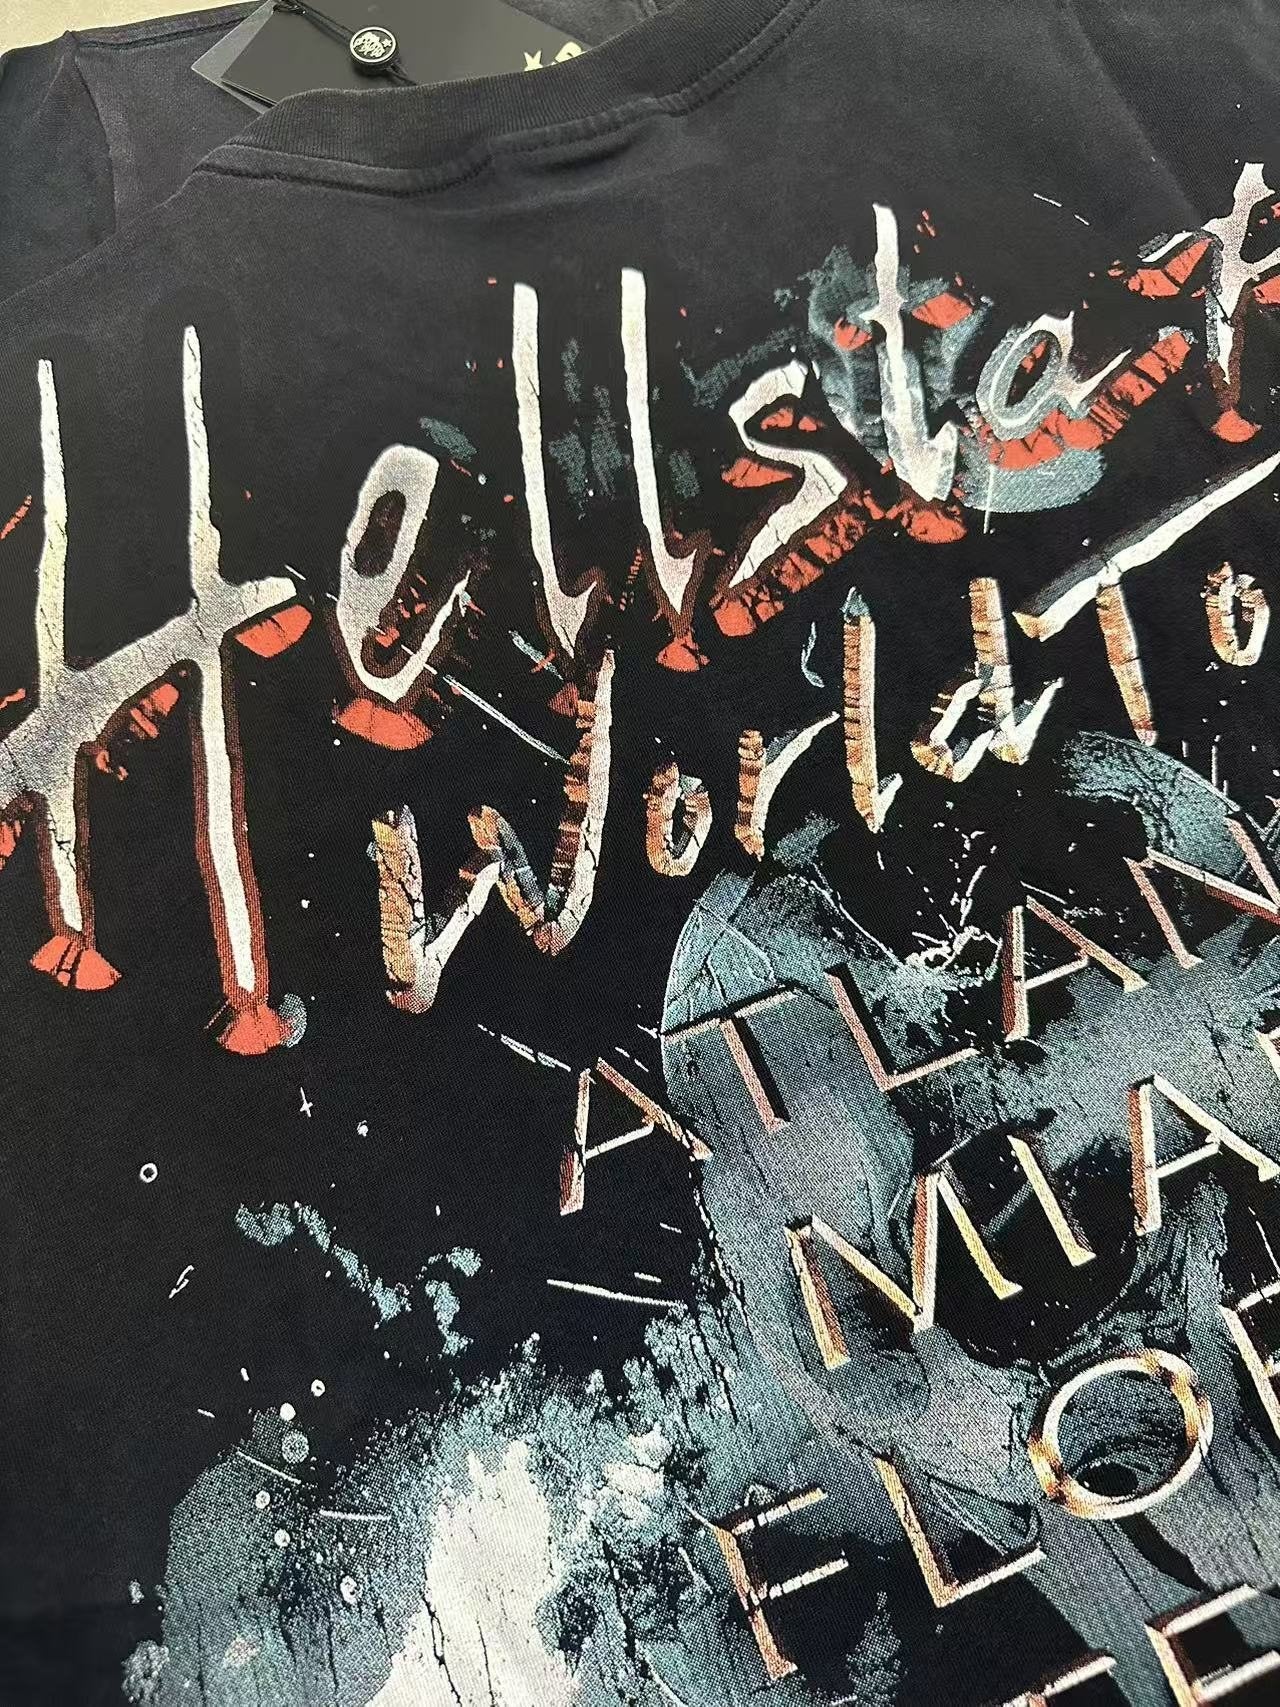 Hellstar
World To
ATLAN
MIA
FLO